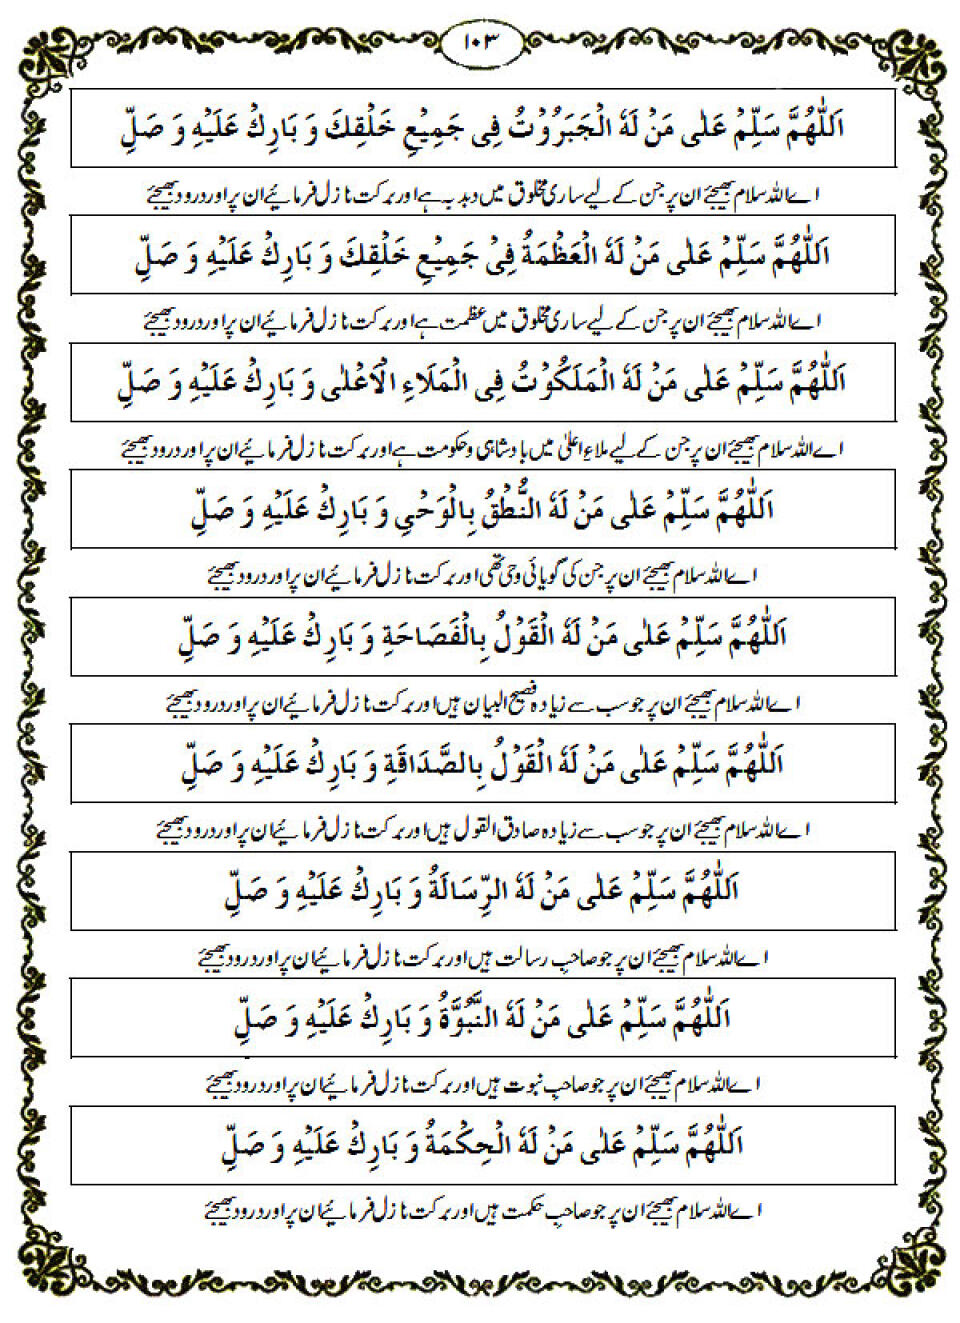 ۱۰۳
اَللّٰهُمَّ سَلِّمْ عَلٰى مَنْ لَهٗ الْجَبَرُوْتُ فِى جَمِيْعِ خَلْقِكَ وَ بَارِكْ عَلَيْهِ وَ صَلِّ
اے اللہ سلام بھیجئے ان پر جن کے لیے ساری مخلوق میں دبدبہ ہے اور برکت نازل فرمائیے ان پر اور درود بھیجئے
اَللّٰهُمَّ سَلِّمْ عَلٰى مَنْ لَهٗ الْعَظْمَةُ فِىْ جَمِيْعِ خَلْقِكَ وَ بَارِكْ عَلَيْهِ وَ صَلِّ
اے اللہ سلام بھیجئے ان پر جن کے لیے ساری مخلوق میں عظمت ہے اور برکت نازل فرمائیے ان پر اور درود بھیجئے
اَللّٰهُمَّ سَلِّمْ عَلٰى مَنْ لَهٗ الْمَلَكُوْتُ فِى الْمَلَاءِ الْاَعْلٰى وَ بَارِكْ عَلَيْهِ وَ صَلِّ
اے اللہ سلام بھیجئے ان پر جن کے لیے ملاءِ اعلیٰ میں بادشاہی و حکومت ہے اور برکت نازل فرمائیے ان پر اور درود بھیجئے
اَللّٰهُمَّ سَلِّمْ عَلٰى مَنْ لَهٗ النُّطْقُ بِالْوَحْىِ وَ بَارِكْ عَلَيْهِ وَ صَلِّ
اے اللہ سلام بھیجئے ان پر جن کی گویائی وحی تھی اور برکت نازل فرمائیے ان پر اور درود بھیجئے
اَللّٰهُمَّ سَلِّمْ عَلٰى مَنْ لَهٗ الْقَوْلُ بِالْفَصَاحَةِ وَ بَارِكْ عَلَيْهِ وَ صَلِّ
اے اللہ سلام بھیجئے ان پر جو سب سے زیادہ فصیح البیان ہیں اور برکت نازل فرمائیے ان پر اور درود بھیجئے
اَللّٰهُمَّ سَلِّمْ عَلٰى مَنْ لَهٗ الْقَوْلُ بِالصَّدَاقَةِ وَ بَارِكْ عَلَيْهِ وَ صَلِّ
اے اللہ سلام بھیجئے ان پر جو سب سے زیادہ صادق القول ہیں اور برکت نازل فرمائیے ان پر اور درود بھیجئے
اَللّٰهُمَّ سَلِّمْ عَلٰى مَنْ لَهٗ الرِّسَالَةُ وَ بَارِكْ عَلَيْهِ وَ صَلِّ
اے اللہ سلام بھیجئے ان پر جو صاحبِ رسالت ہیں اور برکت نازل فرمائیے ان پر اور درود بھیجئے
اَللّٰهُمَّ سَلِّمْ عَلٰى مَنْ لَهٗ النَّبُوَّةُ وَ بَارِكْ عَلَيْهِ وَ صَلِّ
اے اللہ سلام بھیجئے ان پر جو صاحبِ نبوت ہیں اور برکت نازل فرمائیے ان پر اور درود بھیجئے
اَللّٰهُمَّ سَلِّمْ عَلٰى مَنْ لَهٗ الْحِكْمَةُ وَ بَارِكْ عَلَيْهِ وَ صَلِّ
اے اللہ سلام بھیجئے ان پر جو صاحبِ حکمت ہیں اور برکت نازل فرمائیے ان پر اور درود بھیجئے